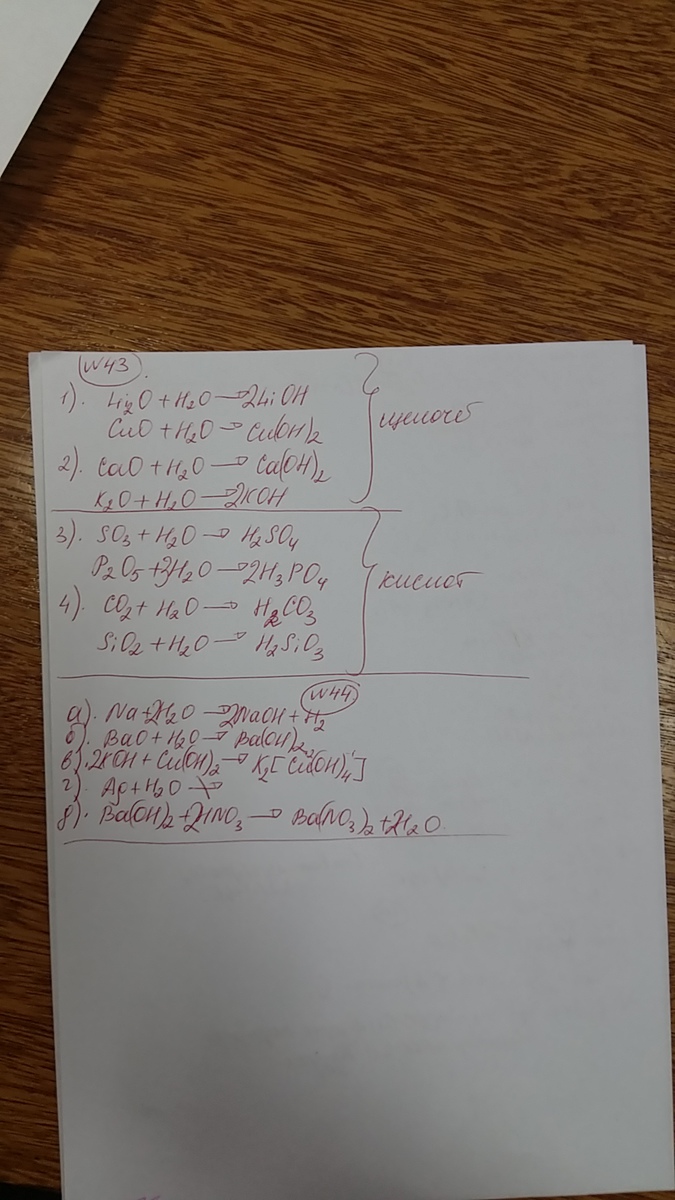 №43.
1). Li₂O + H₂O → 2LiOH
CuO + H₂O → Cu(OH)₂
щелочь
2). CaO + H₂O → Ca(OH)₂
K₂O + H₂O → 2KOH
3). SO₃ + H₂O → H₂SO₄
P₂O₅ + 3H₂O → 2H₃PO₄
кислот
4). CO₂ + H₂O → H₂CO₃
SiO₂ + H₂O → H₂SiO₃
№44
а). Na + 2H₂O → 2NaOH + H₂
б). BaO + H₂O → Ba(OH)₂
в). 2KOH + Cu(OH)₂ → K₂[Cu(OH)₄]
г). Ag + H₂O ↛
д). Ba(OH)₂ + 2HNO₃ → Ba(NO₃)₂ + 2H₂O